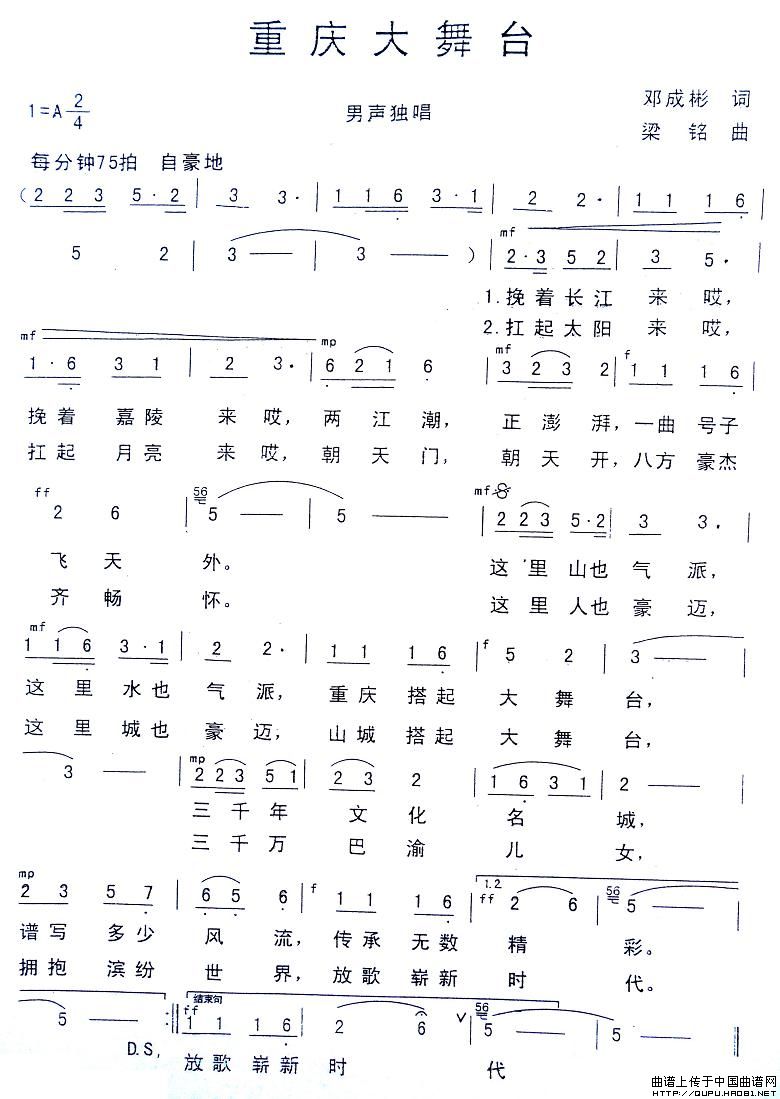 重庆大舞台
1=A 2/4
男声独唱
邓成彬 词
梁 铭 曲
每分钟75拍 自豪地
(2 2 3 5·2 | 3 3· | 1 1 6 3·1 | 2 2· | 1 1 1 6 |
mf
5 2 | 3 — | 3 — ) | 2·3 5 2 | 3 5· |
1.挽着长江 来 哎,
2.扛起太阳 来 哎,
mf mp mf f
1·6 3 1 | 2 3· | 6 2 1 6 | 3 2 3 2 | 1 1 1 6 |
挽着 嘉陵 来 哎, 两 江 潮, 正 澎 湃, 一曲 号子
扛起 月亮 来 哎, 朝 天 门, 朝 天 开, 八方 豪杰
ff 56 mf
2 6 | 5 — | 5 — | 2 2 3 5·2 | 3 3· |
飞 天 外。 这 里 山也 气 派,
齐 畅 怀。 这 里 人也 豪 迈,
mf f
1 1 6 3·1 | 2 2· | 1 1 1 6 | 5 2 | 3 — |
这 里 水也 气 派, 重庆 搭起 大 舞 台,
这 里 城也 豪 迈, 山城 搭起 大 舞 台,
mp
3 — | 2 2 3 5 1 | 2 3 2 | 1 6 3 1 | 2 — |
三 千 年 文 化 名 城,
三 千 万 巴 渝 儿 女,
mp f 1.2. ff 56
2 3 5 7 | 6 5 6 | 1 1 1 6 | 2 6 | 5 — |
谱写 多少 风 流, 传承 无数 精 彩。
拥抱 滨纷 世 界, 放歌 崭新 时 代。
结束句
ff 56
5 — :‖ 1 1 1 6 | 2 6 ∨ | 5 — | 5 — ‖
D.S,
放歌 崭新 时 代
曲谱上传于中国曲谱网
http://QUPU.HAO81.NET